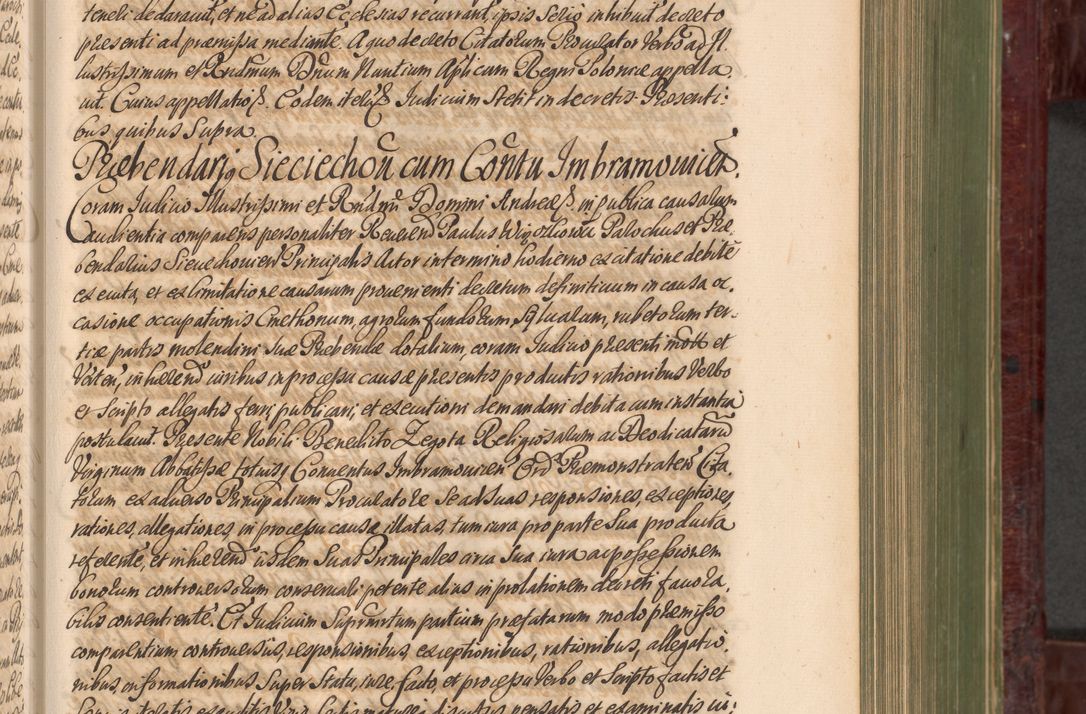 teneri declaravit, et ne ad alias Ecclesias recurrant, ipsis serio inhibuit decreto
præsenti ad præmissa mediante. A quo decreto Citatorum Procurator Verbo ad Il-
lustrissimum et Rndmum Dnum Nuntium Aplicum Regni Poloniæ appella-
vit. Cuius appellationis. Eodem Iudicium stetit in decretis. Præsenti-
bus quibus Supra.
Præbendarij Sieciechou cum Contu Imbramouicen.
Coram Iudicio Illustrissimi et Rndmi Domini Andreæ in publica causarum
audientia comparens personaliter Reuerend Paulus Parochus et Præ-
bendarius Sieciechouien Principalis Actor in termino hodierno ex citatione debite
exeuta, et ex limitatione causarum prouenienti decretum definitiuum in causa oc-
casione occupationis Cmethonum, agrorum fundorum, Syluarum, rubetorum ter-
tiæ partis molendini suæ Præbendæ dotalium, coram Iudicio præsenti mota et
Verten, inhærend iuribus in processu causæ præsentis productis rationibus Verbo
et Scripto allegatis ferri, publicari, et executioni demandari debita cum instantia
postulauit. Præsente Nobili Benedicto Zegota Religiosarum ac Deo dicatarum
Virginum Abbatissæ totiusq Conuentus Imbramouicen Ord Præmonstraten Cita-
torum ex aduerso Principalium Procuratore se ad suas responsiones, exceptiones
rationes, allegationes, in processu causæ illatas, tum iura pro parte sua producta
referente, et inhærend iisdem Suas Principales circa sua iura ac possessionem
bonorum controuersorum conseruari petente alias in prolationem decreti fauora-
bilis consentiente. Et Iudicium Supremum partium præfatarum modo præmisso
comparentium controuersiis, responsionibus, exceptionibus, rationibus, allegatio-
nibus, informationibus Super Statu, iure, facto, et processu Verbo et Scripto factis et